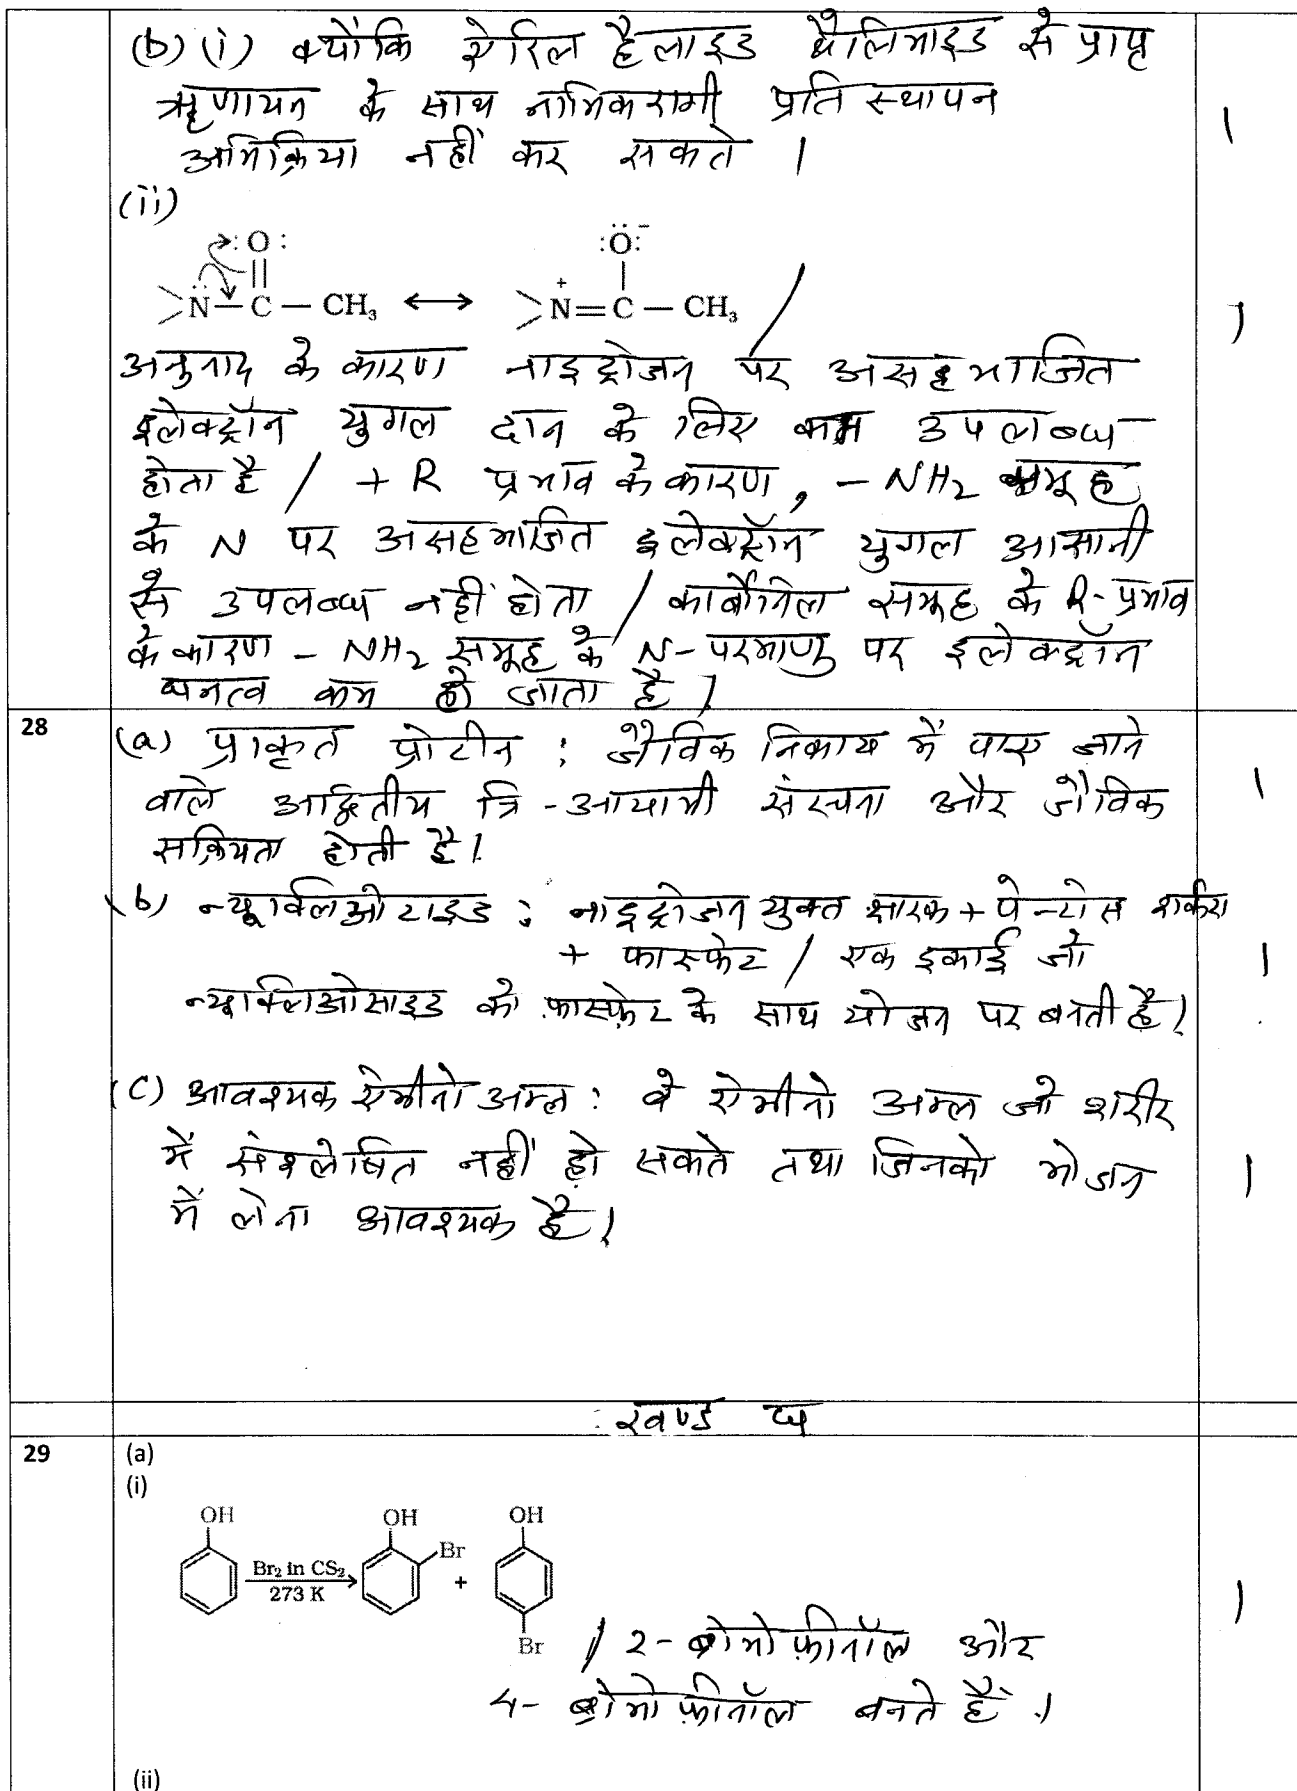 (b) (i) क्योंकि ऐरिल हैलाइड थैलिमाइड से प्राप्त
ऋणायन के साथ नाभिकरागी प्रतिस्थापन
अभिक्रिया नहीं कर सकते । 1
(ii)
:O: :Ö:⁻
>N̈—C—CH₃ ⟷ >N⁺=C—CH₃ / 1
अनुनाद के कारण नाइट्रोजन पर असहभाजित
इलेक्ट्रॉन युगल दान के लिए कम उपलब्ध
होता है / +R प्रभाव के कारण, -NH₂ समूह
के N पर असहभाजित इलेक्ट्रॉन युगल आसानी
से उपलब्ध नहीं होता / कार्बोनिल समूह के R-प्रभाव
के कारण -NH₂ समूह के N-परमाणु पर इलेक्ट्रॉन
घनत्व कम हो जाता है ।
28 (a) प्राकृत प्रोटीन : जैविक निकाय में पाए जाने
वाले अद्वितीय त्रि-आयामी संरचना और जैविक 1
सक्रियता होती है।
(b) न्यूक्लिओटाइड : नाइट्रोजन युक्त क्षारक + पेन्टोस शर्करा
+ फास्फेट / एक इकाई जो 1
न्यूक्लिओसाइड को फास्फ़ेट के साथ योजन पर बनती है।
(c) आवश्यक ऐमीनो अम्ल : वे ऐमीनो अम्ल जो शरीर
में संश्लेषित नहीं हो सकते तथा जिनको भोजन 1
में लेना आवश्यक है।
खण्ड घ
29 (a)
(i)
OH OH OH
Br₂ in CS₂ Br
273 K + 1
Br / 2-ब्रोमोफ़ीनॉल और
4-ब्रोमोफ़ीनॉल बनते हैं ।
(ii)